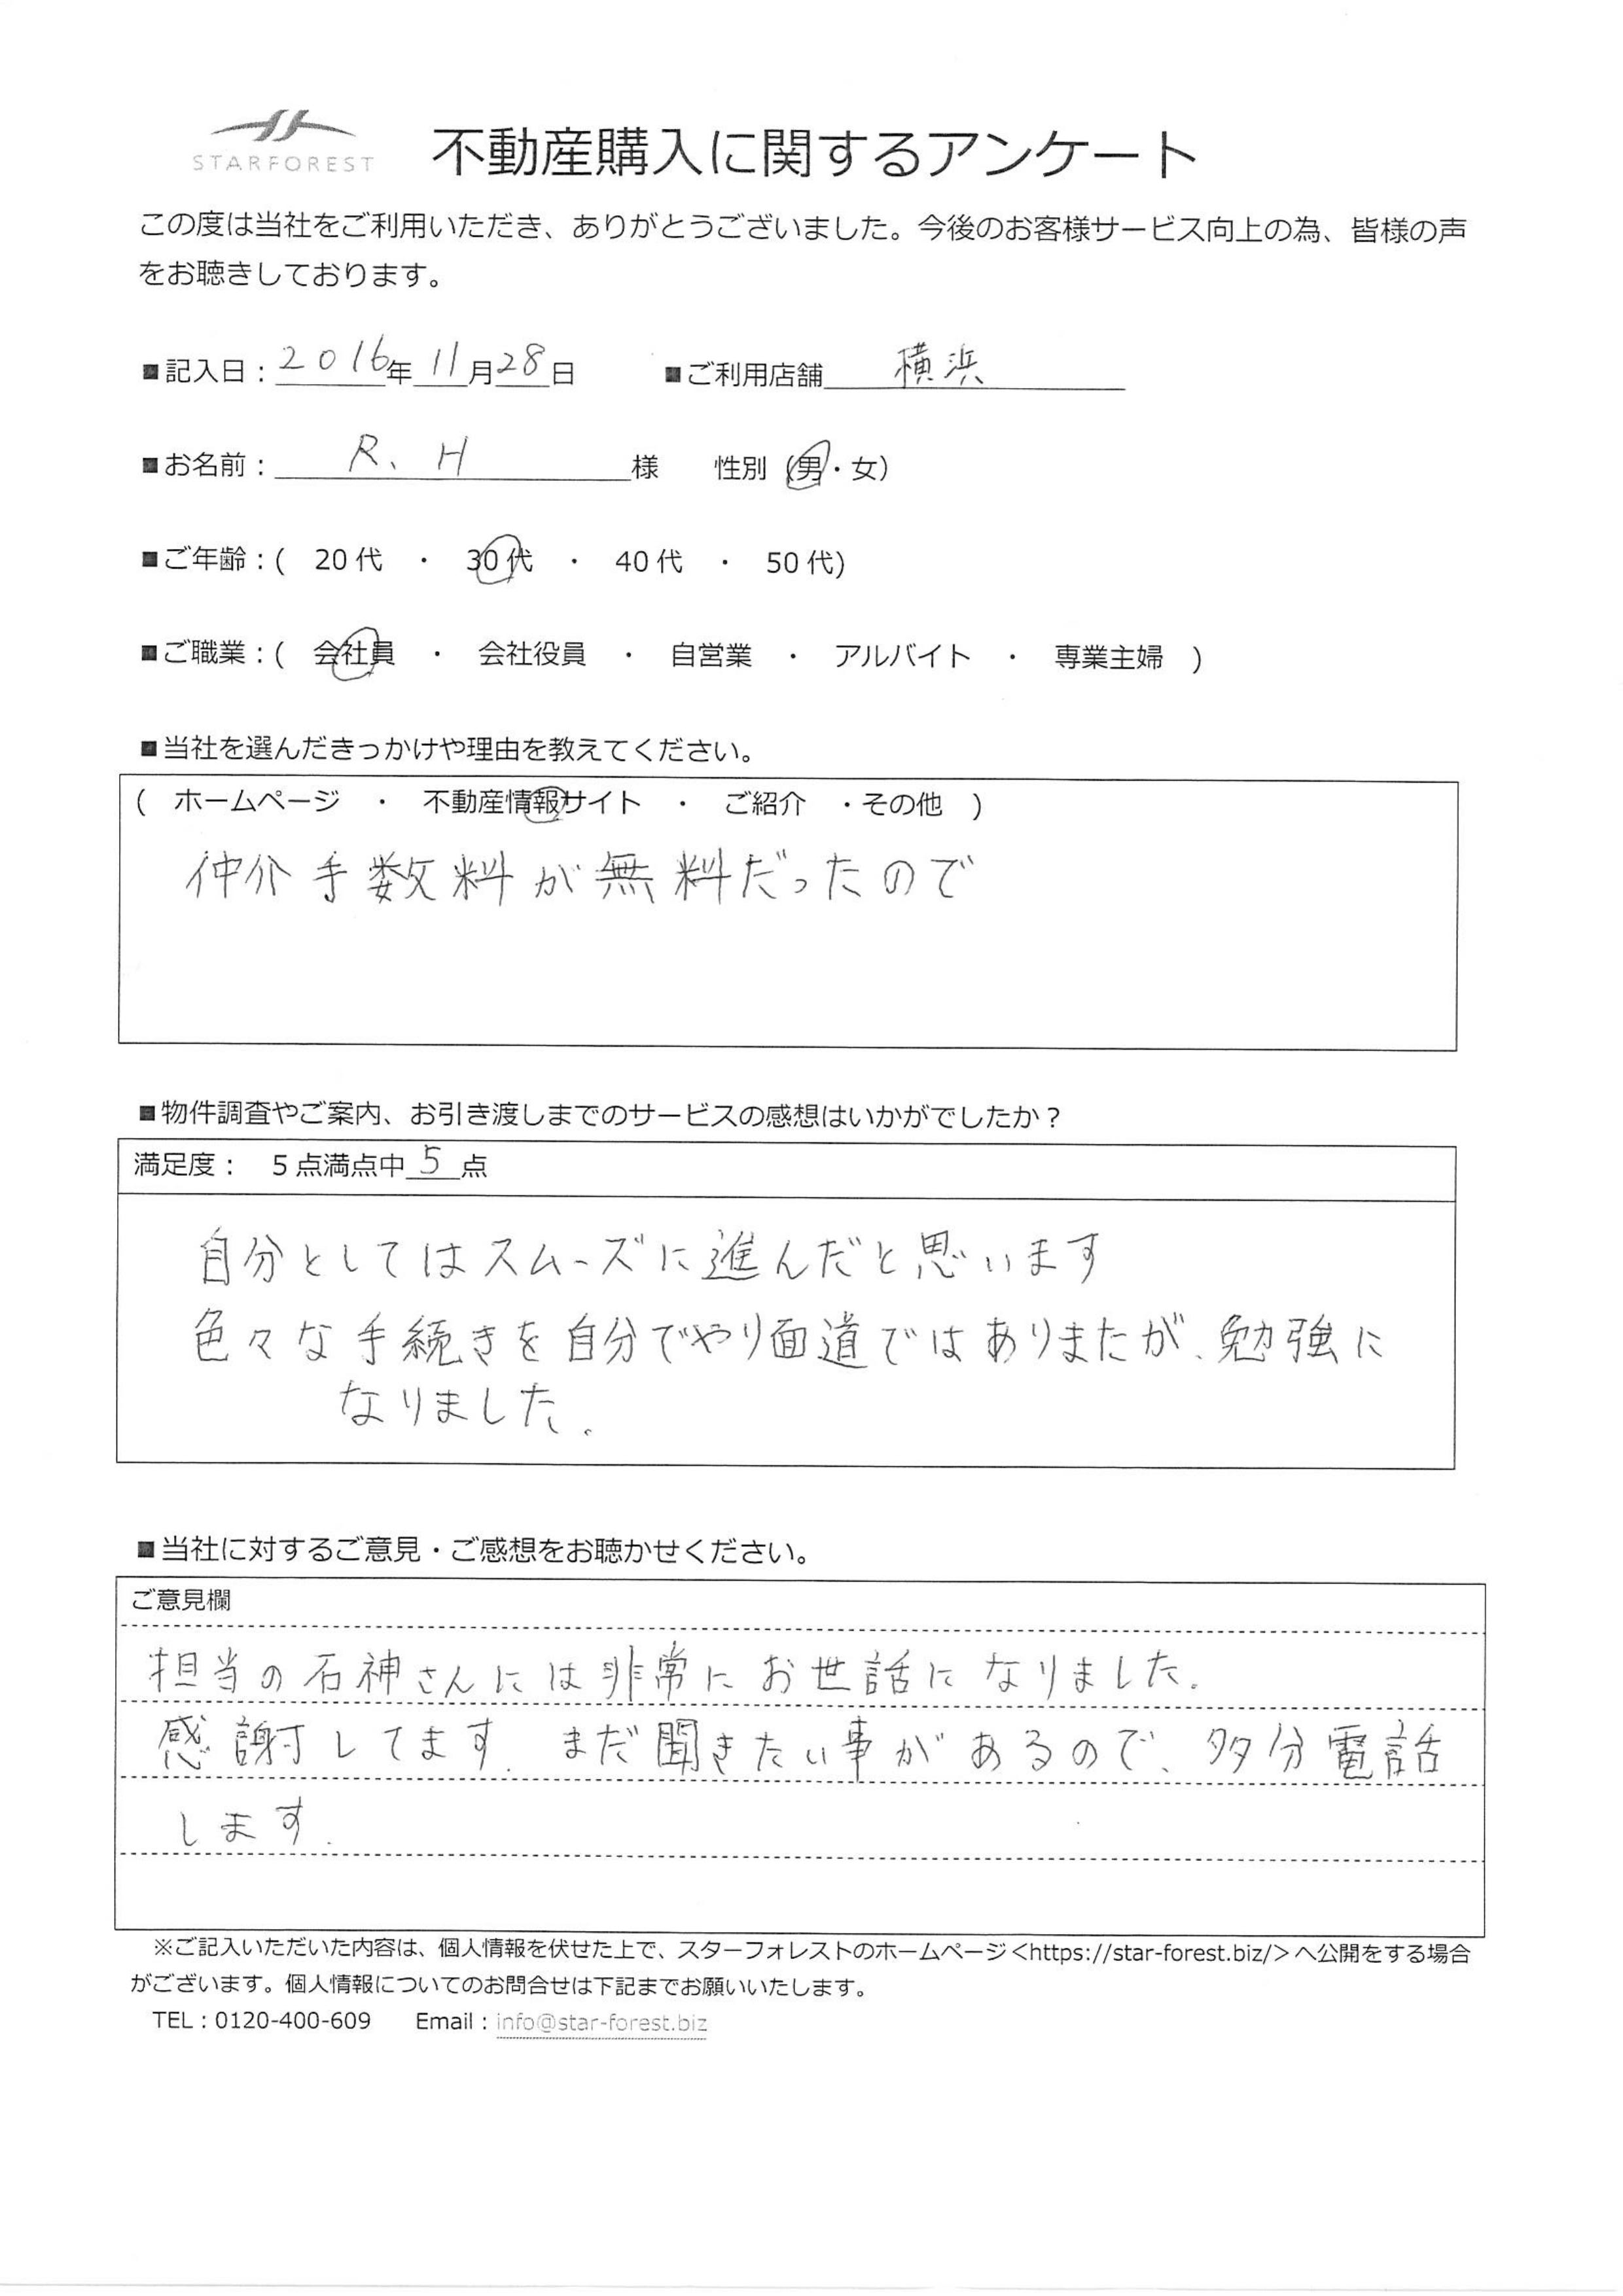 STARFOREST
不動産購入に関するアンケート
この度は当社をご利用いただき、ありがとうございました。今後のお客様サービス向上の為、皆様の声
をお聴きしております。
■記入日：2016年11月28日 ■ご利用店舗 横浜
■お名前：R、H 様 性別（男・女）
■ご年齢：( 20代 ・ 30代 ・ 40代 ・ 50代)
■ご職業：( 会社員 ・ 会社役員 ・ 自営業 ・ アルバイト ・ 専業主婦 )
■当社を選んだきっかけや理由を教えてください。
( ホームページ ・ 不動産情報サイト ・ ご紹介 ・その他 )
仲介手数料が無料だったので
■物件調査やご案内、お引き渡しまでのサービスの感想はいかがでしたか？
満足度： 5点満点中 5 点
自分としてはスムーズに進んだと思います
色々な手続きを自分でやり面道ではありまたが、勉強に
なりました。
■当社に対するご意見・ご感想をお聴かせください。
ご意見欄
担当の石神さんには非常にお世話になりました.
感謝してます. まだ聞きたい事があるので、多分電話
します.
※ご記入いただいた内容は、個人情報を伏せた上で、スターフォレストのホームページ<https://star-forest.biz/>へ公開をする場合
がございます。個人情報についてのお問合せは下記までお願いいたします。
TEL：0120-400-609 Email：info@star-forest.biz